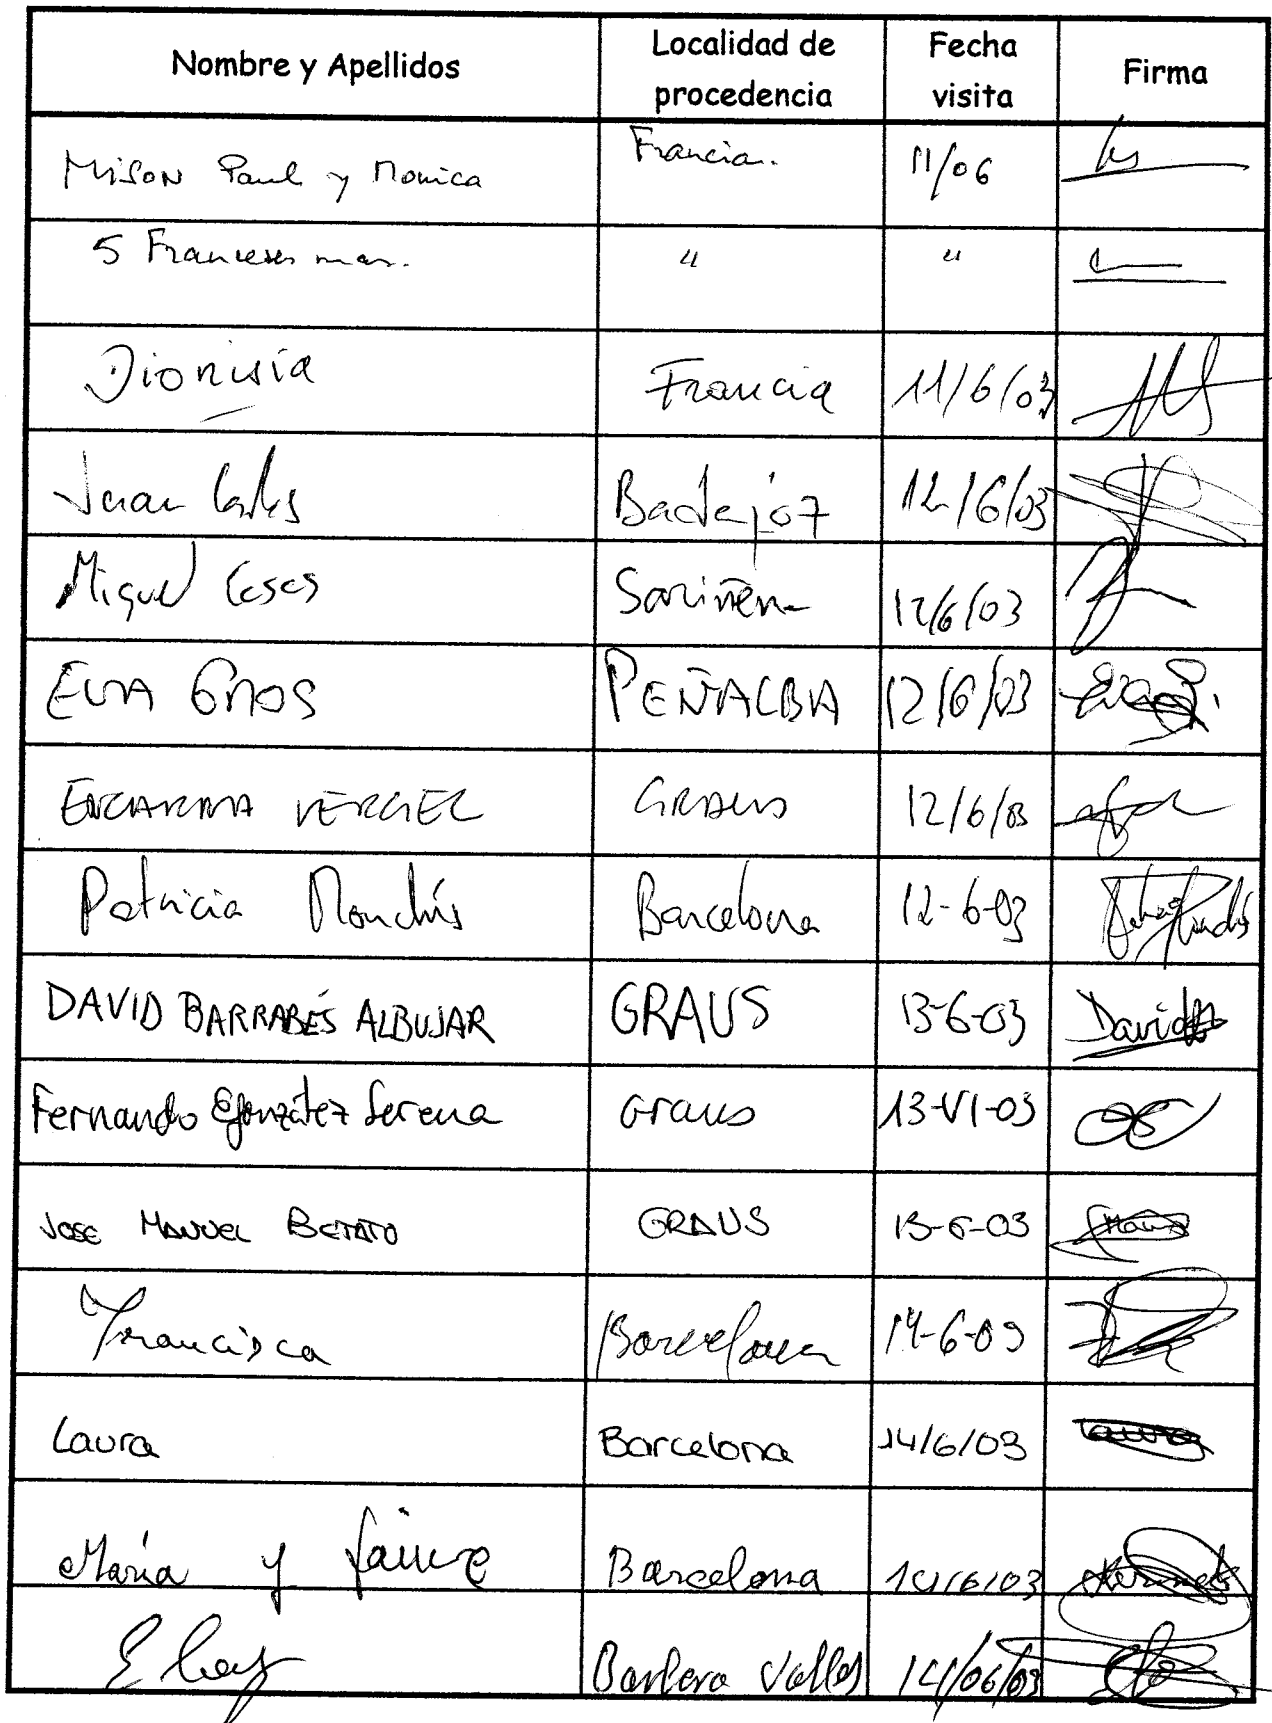 Nombre y Apellidos Localidad de procedencia Fecha visita Firma
Mison Paul y Monica Francia. 11/06
5 Franceses mas. " "
Dionisia Francia 11/6/03
Juan Carlos Badajoz 12/6/03
Miguel Casas Sariñena 12/6/03
EVA GROS PEÑALBA 12/6/03
ENCARNA VERGEL GRAUS 12/6/03
Patricia Barcelona 12-6-03
DAVID BARRABÉS ALBUJAR GRAUS 13-6-03 David
Fernando González Serena Graus 13-VI-03
JOSE MANUEL BETATO GRAUS 13-6-03
Francisca Barcelona 14-6-03
Laura Barcelona 14/6/03 Laura
María y Jaime Barcelona 14/6/03
Barbera Valles 14/06/03